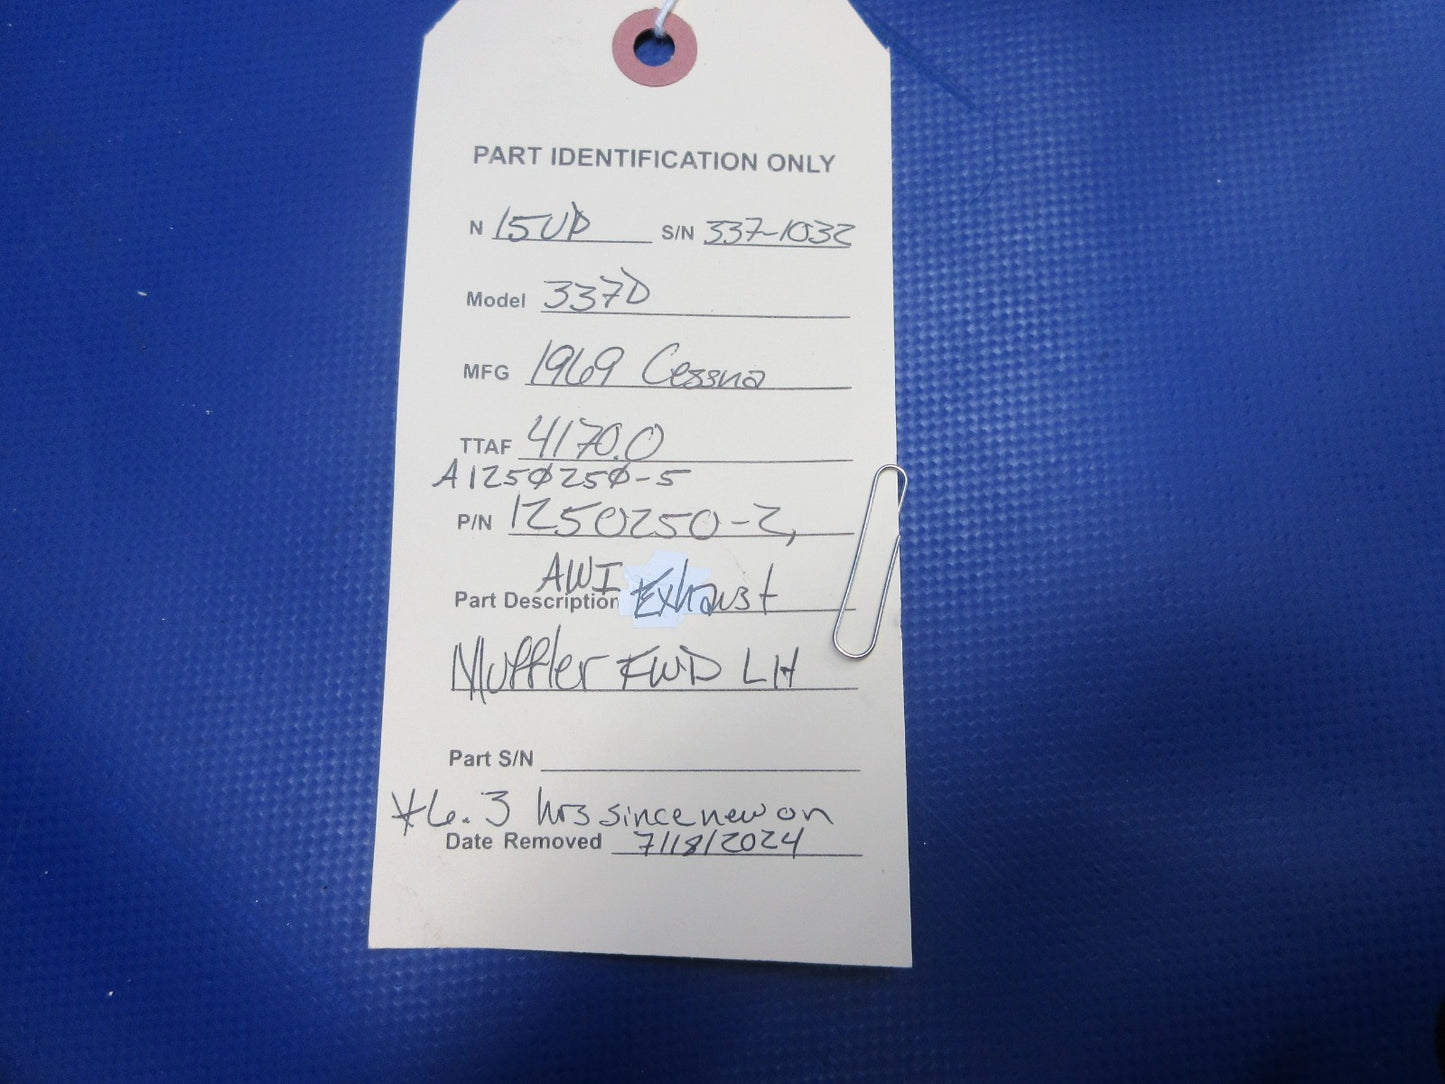 PART IDENTIFICATION ONLY
N 15UP S/N 337-1032
Model 337D
MFG 1969 Cessna
TTAF 4170.0
A125Ø25Ø-5
P/N 1250250-2,
AWI
Part Description Exhaust
Muffler FWD LH
Part S/N
*6.3 hrs since new on
Date Removed 7/18/2024